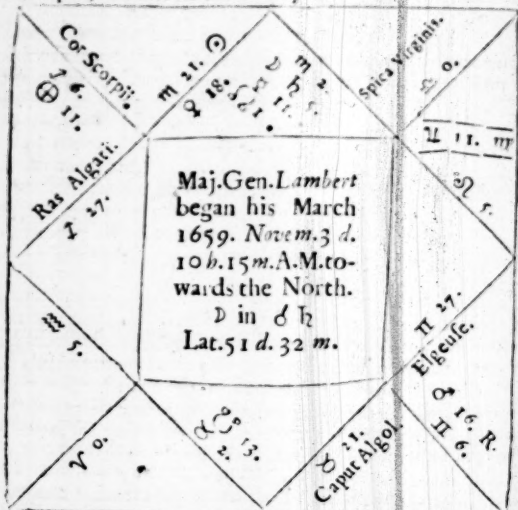 Cor Scorpii.
♐ 6.
⊕ 11.
♏ 21. ☉
♀ 18.
☽ ♏ 2.
♄ 5.
Spica Virginis.
♎ 0.
♃ 11. ♍
♌ 5.
Ras Algati.
♐ 27.
Maj.Gen.Lambert
began his March
1659. Novem.3 d.
10 h.15 m.A.M.to-
wards the North.
☽ in ☌ ♄
Lat.51 d. 32 m.
♒ 5.
♊ 27.
Elgeuse.
♂ 16. R.
♊ 6.
♈ 0.
☋ 13.
♉ 2.
♉ 21.
Caput Algol.